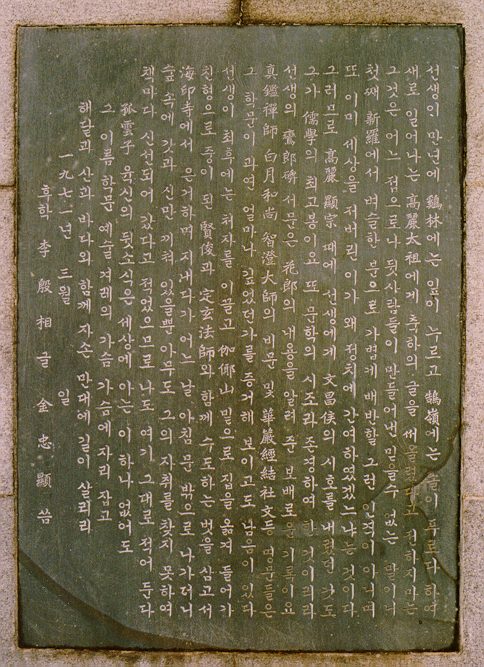 선생이 만년에 鷄林에는 잎이 누르고 鵠嶺에는 솔이 푸르다 하여
새로 일어나는 高麗太祖에게 축하의 글을 써 올렸다고 전하지마는
그것은 어느 점으로나 뒷사람들이 만들어낸 믿을 수 없는 말이니
첫째 新羅에서 벼슬한 분으로 가볍게 배반할 그런 인격이 아니며
또 이미 세상을 저버린 이가 왜 정치에 간여하였겠느냐는 것이다
그러므로 高麗 顯宗 때에 선생에게 文昌侯의 시호를 내렸던 것도
그가 儒學의 최고봉이요 또 문학의 시조라 존경하여 한 것이리라
선생의 鸞郎碑 서문은 花郎의 내용을 알려 준 보배로운 기록이요
眞鑑禪師 白月和尙 智澄大師의 비문 및 華嚴經結社文등 명문들은
그 학문이 과연 얼마나 깊었던가를 증거해 보이고도 남음이 있다
선생이 최후에는 처자를 이끌고 伽倻山 밑으로 집을 옮겨 들어가
친형으로 중이 된 賢俊과 定玄法師와 함께 수도하는 벗을 삼고서
海印寺에서 은거하며 지내다가 어느 날 아침 문 밖으로 나가더니
숲 속에 갓과 신만 끼쳐 있을뿐 아무도 그의 자취를 찾지 못하여
책마다 신선되어 갔다고 적었으므로 나도 여기 그대로 적어 둔다
孤雲子 육신의 뒷소식은 세상에 아는 이 하나 없어도
그 이름 학문 예술 겨레의 가슴 가슴에 자리 잡고
해달과 산과 바다와 함께 자손 만대에 길이 살리라
一九七一년 三월 일
후학 李 殷 相 글 金 忠 顯 씀